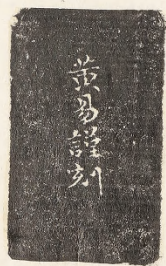 黄易謹刻